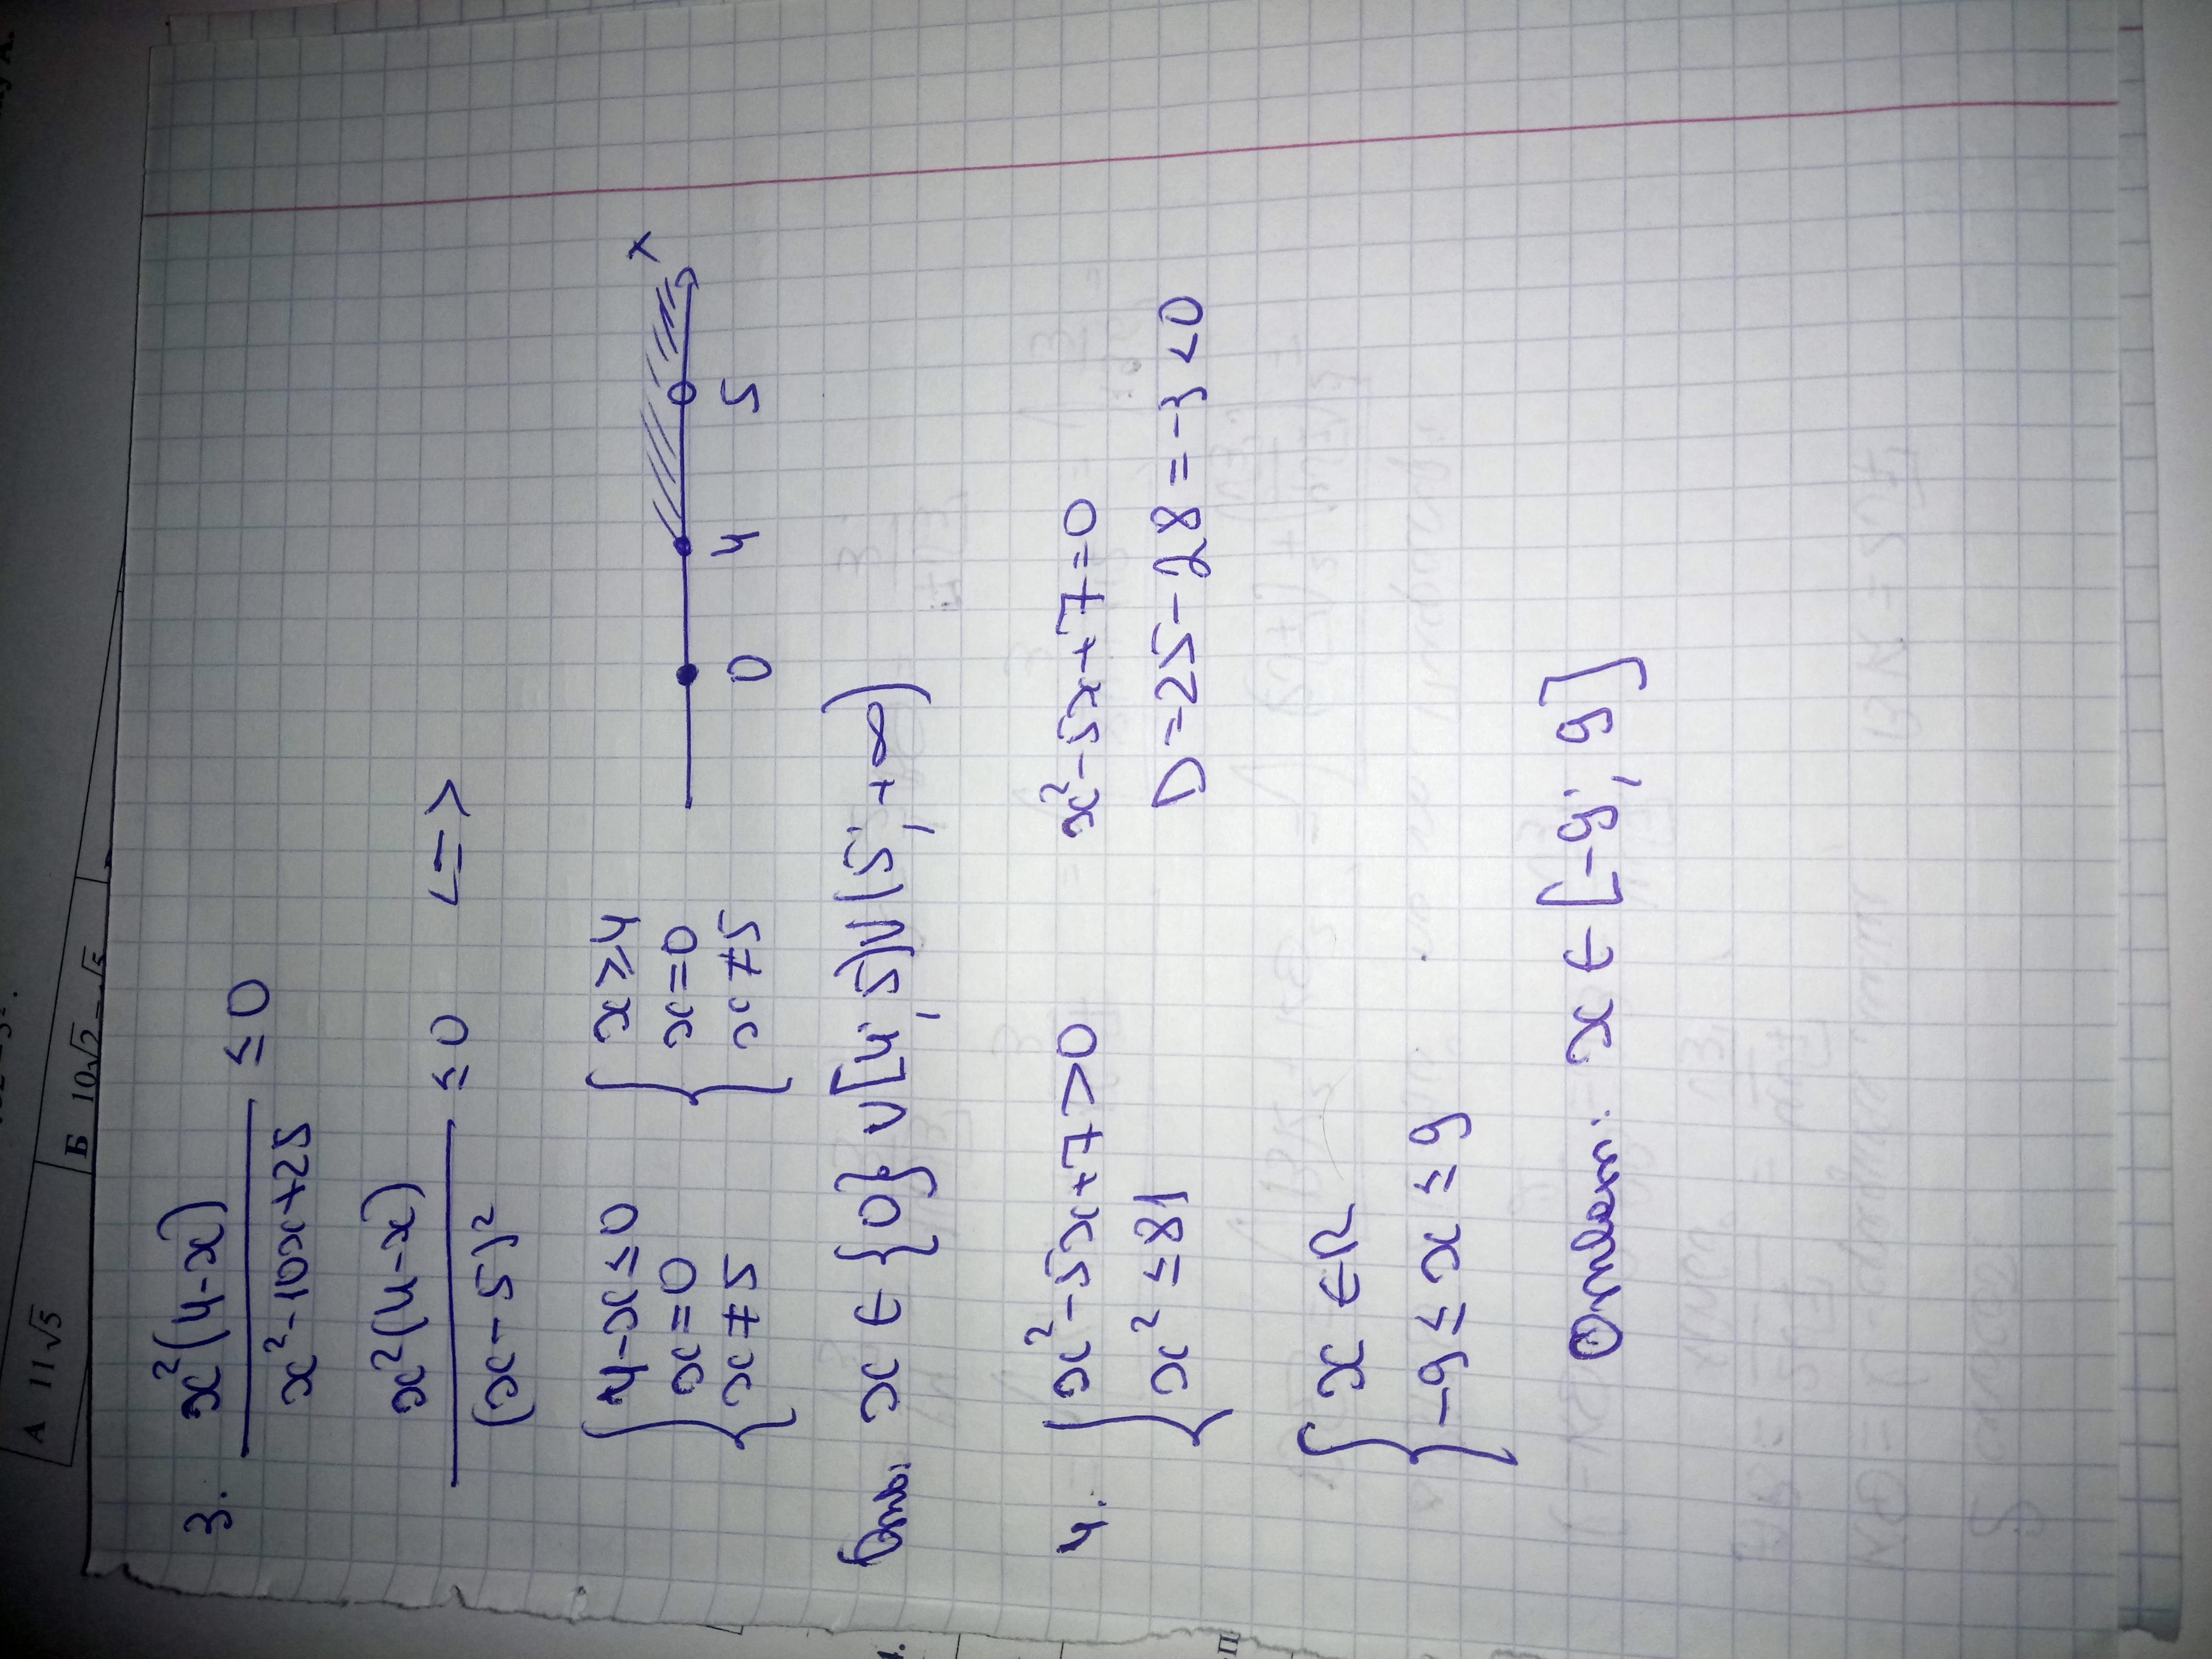 А 11√5
Б 10√2 - √5
3. x²(4-x) / x²-10x+25 ≤ 0
x²(4-x) / (x-5)² ≤ 0 <=>
{ 4-x≤0 { x≥4
x=0 x=0
x≠5 x≠5
0 4 5 x
Отв: x ∈ {0} ∪ [4; 5) ∪ (5; +∞)
4. { x²-5x+7>0 x²-5x+7=0
x² ≤ 81 D=25-28=-3<0
{ x ∈ R
-9 ≤ x ≤ 9
Ответ: x ∈ [-9; 9]